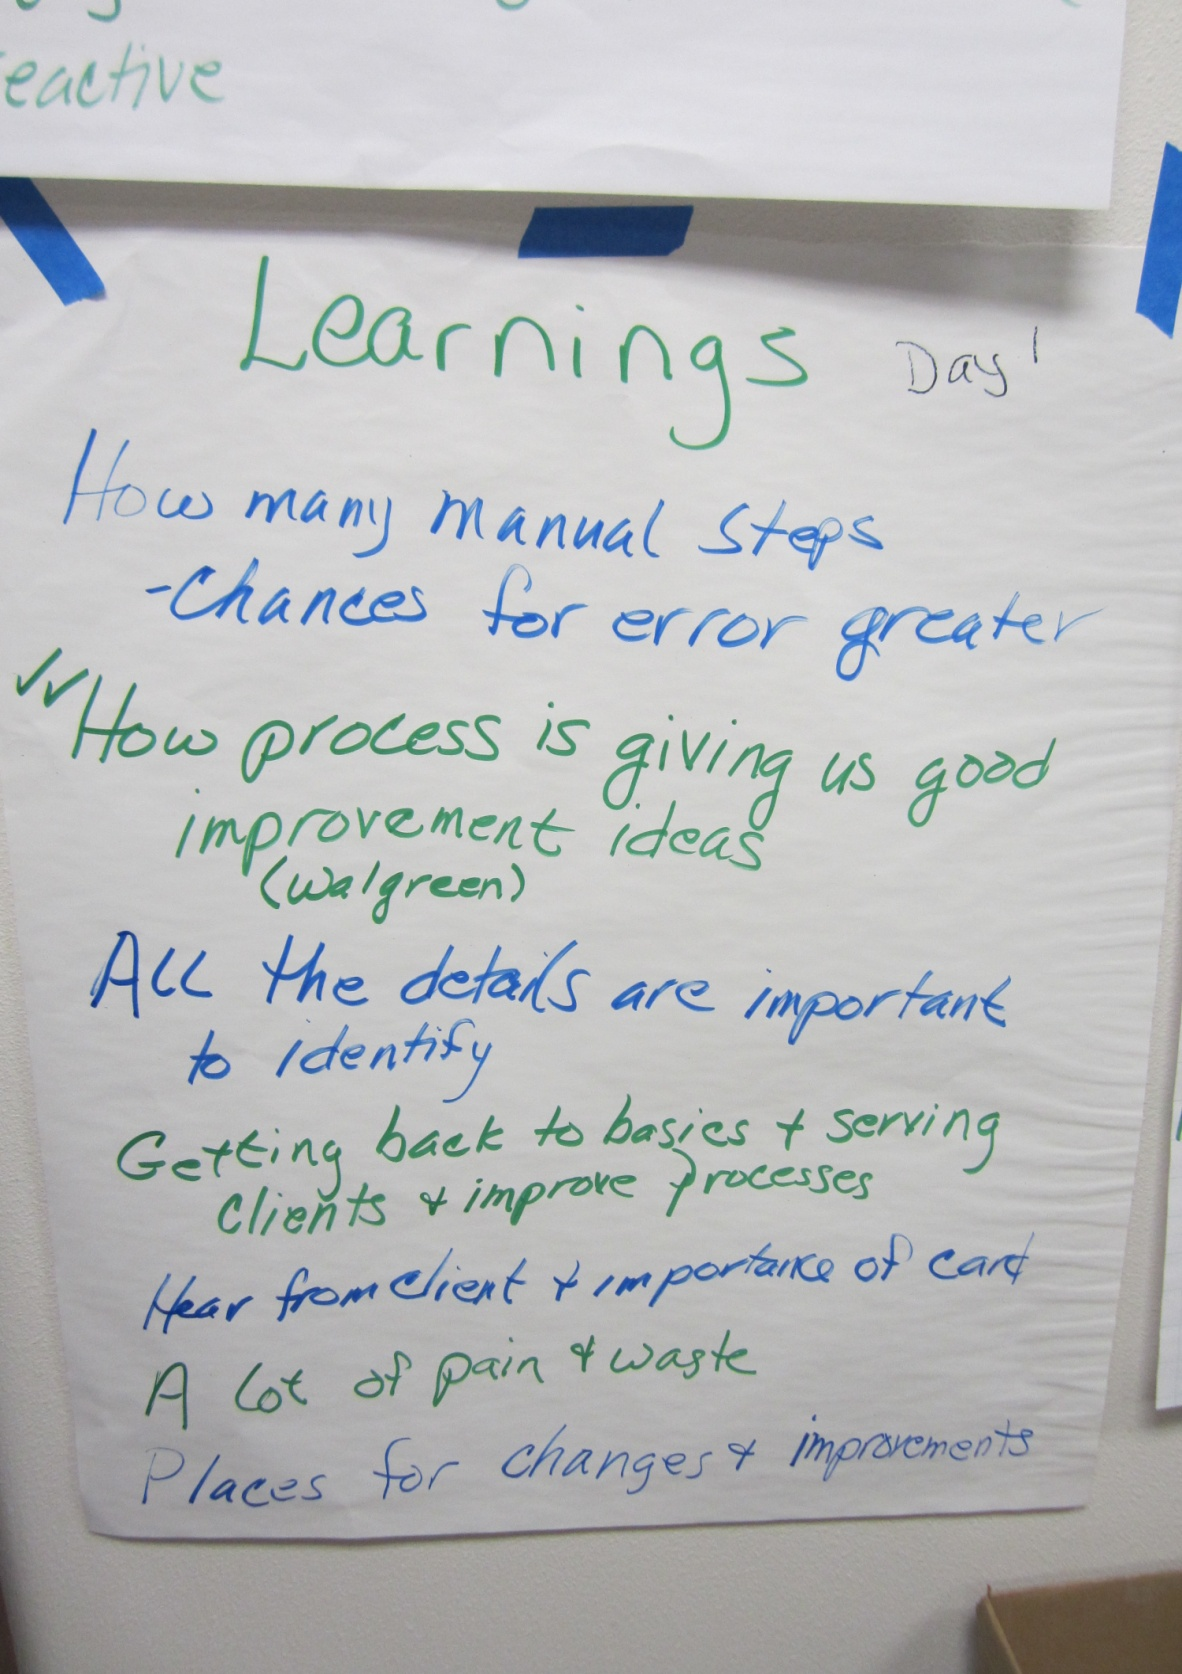 eactive
Learnings Day 1
How many manual steps
-Chances for error greater
✓✓ How process is giving us good
improvement ideas
(Walgreen)
ALL the details are important
to identify
Getting back to basics + serving
Clients + improve processes
Hear from client + importance of card
A lot of pain + waste
Places for changes + improvements